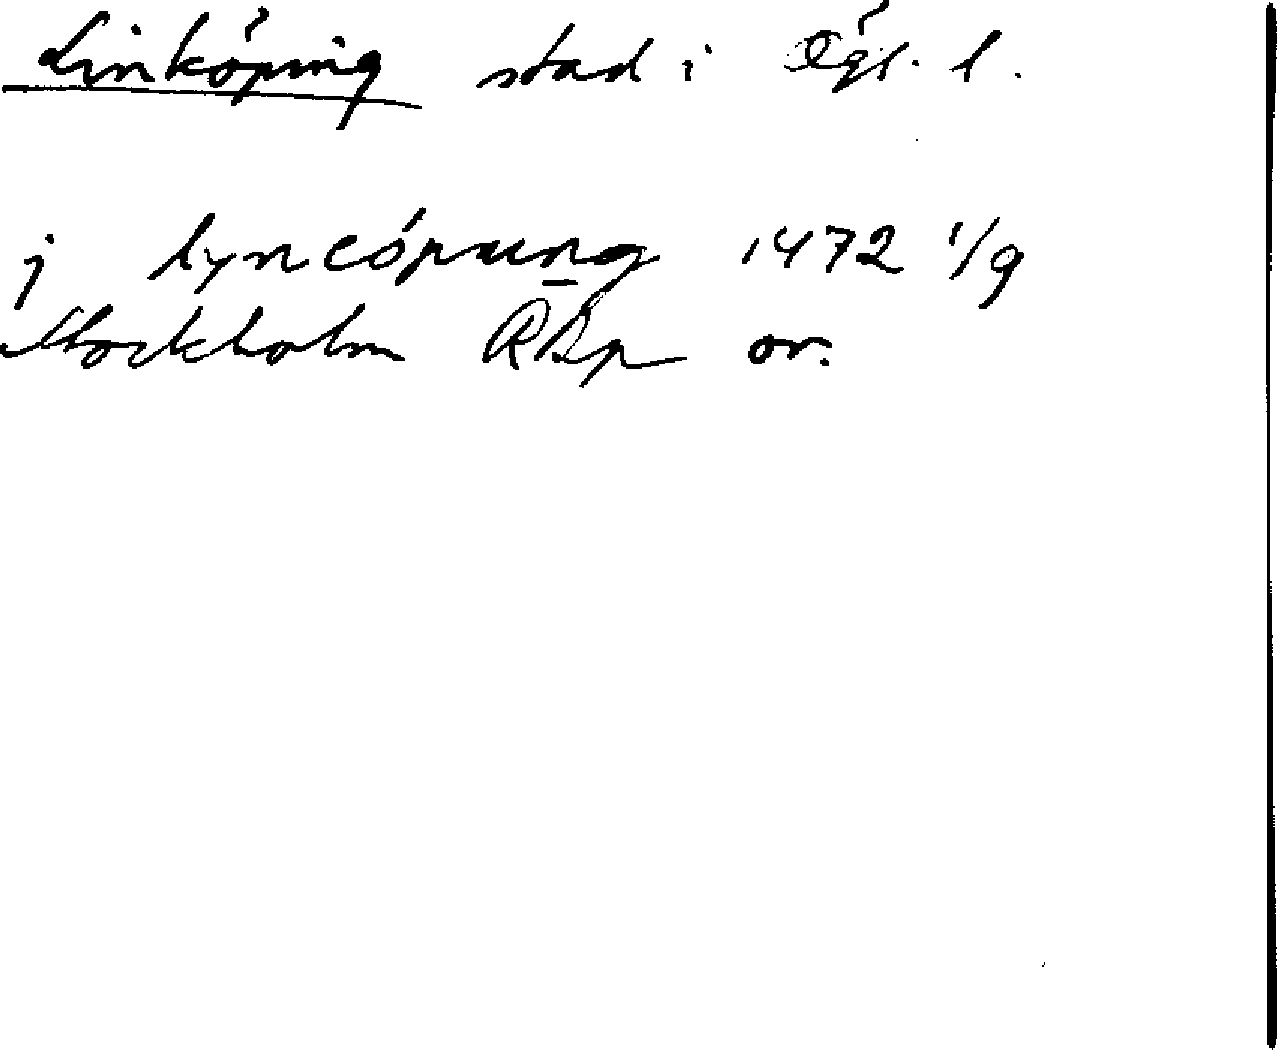 Linköping stad i Ögl. l.
j lyncöpung 1472 1/9
Stockholm RAp or.